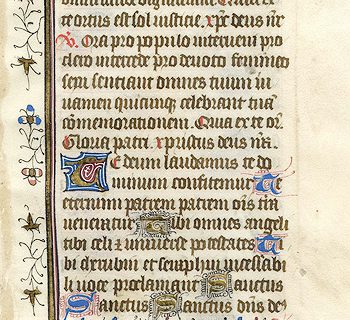 te ortus est sol iusticie. xp̄c deus nr̄
℣. Ora pro populo interueni pro
clero intercede pro deuoto femineo
sexu sentiant omnes tuum iu
uamen quicunq; celebrant tuā
cōmemorationem. Quia ex te or.
Gloria patri. xpristus deus nr̄.
Te deum laudamus te do
minum confitemur Te
eternum patrem patrem oīs t̄ra
ueneratur Tibi omnes angeli
tibi celi ⁊ uniuerse potestates Ti
bi cherubin et seraphin incessabi
li uoce proclamant Sanctus
Sanctus Sanctus dn̄s de